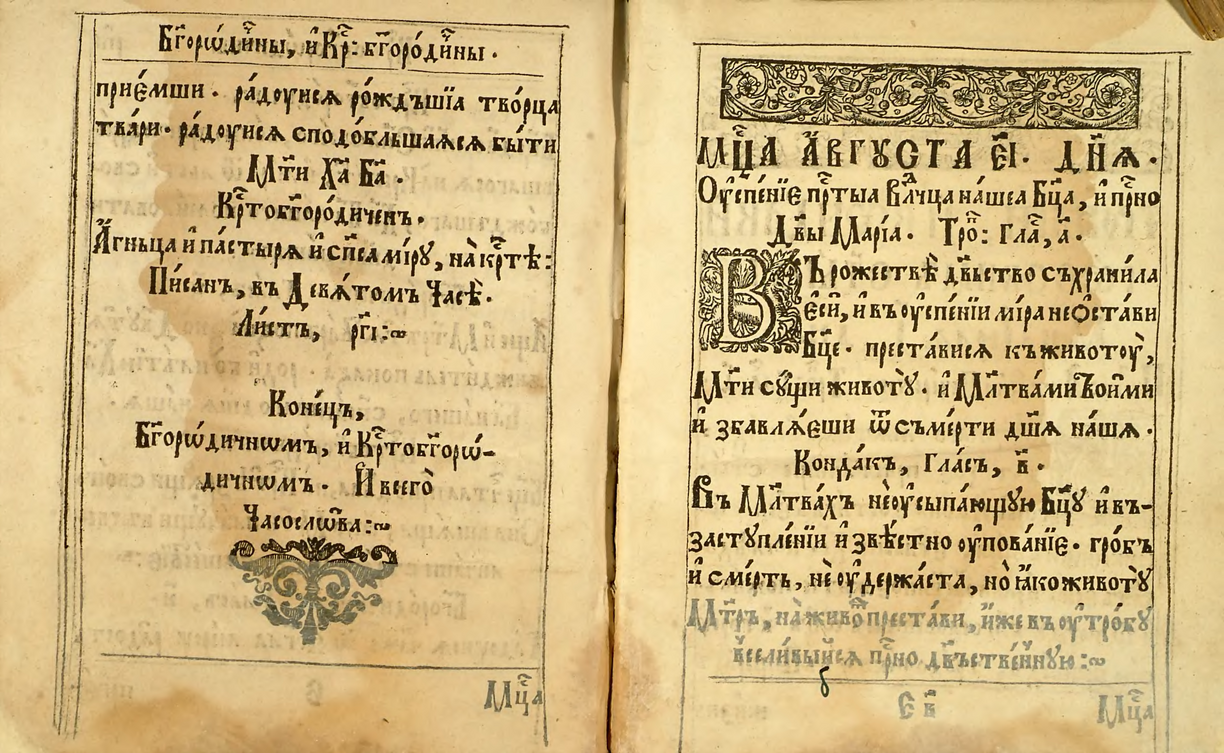 Бг҃оро́дины, и҆ Крⷭ҇: бг҃оро́дины.
прїе́мши. ра́дꙋисѧ ро́ждьшїа тво́рца
тва́ри. ра́дꙋисѧ сподо́бльшаѧсѧ бы́ти
Мт҃и Хⷭ҇а Ба҃.
Крⷭ҇тобг҃оро́диченъ.
А҆́гньца и҆ па́стырѧ и҆ сп҃са мі́рꙋ, на крⷭ҇тѣ:
Пи́санъ, въ Девѧ́томъ Часѣ̀.
Ли́стъ, рг҃і:~
Коне́цъ,
Бг҃орѡ́дичнѡмъ, и҆ Крⷭ҇тобг҃орѡ́-
дичнѡмъ. И҆ всего̀
Часосло́ва:~
Є
Мцⷭ҇а
МЦⷭ҇А А҆́ВГꙊСТА є҃і. ДН҃Ѧ.
Оу҆спе́нїе прⷭ҇тыа Влⷣчца на́шеа Бц҃а, и҆ прⷭ҇но
Дв҃ы Марі́а. Троⷫ҇: Гла́, а҃.
Въ рожествѣ̀ дв҃ьство съхрани́ла
є҆сѝ, и҆ въ оу҆спе́нїи мі́ра не ѻ҆ста́ви
Бц҃е. преста́висѧ къ животоу̀,
Мт҃и сꙋ́щи живо́тꙋ. и҆ Мл҃твами Твои́ми
и҆ збавлѧ́еши ѿ съме́рти дш҃ѧ на́шѧ.
Конда́къ, Гла́съ, в҃.
Въ Мл҃тва́хъ неоу҆сыпа́ющꙋю Бц҃ꙋ и҆ въ-
застꙋпле́нїи и҆ звѣ́стно оу҆пова́нїе. гро́бъ
и҆ сме́рть, не оу҆держа́ста, но ꙗ҆́ко живо́тꙋ
Мт҃рь, на живо́ⷮ преста́ви, и҆́же въ оу҆тро́бꙋ
всели́выисѧ прⷭ҇но дв҃ьстве́ннꙋю:~
Є в҃
Мцⷭ҇а